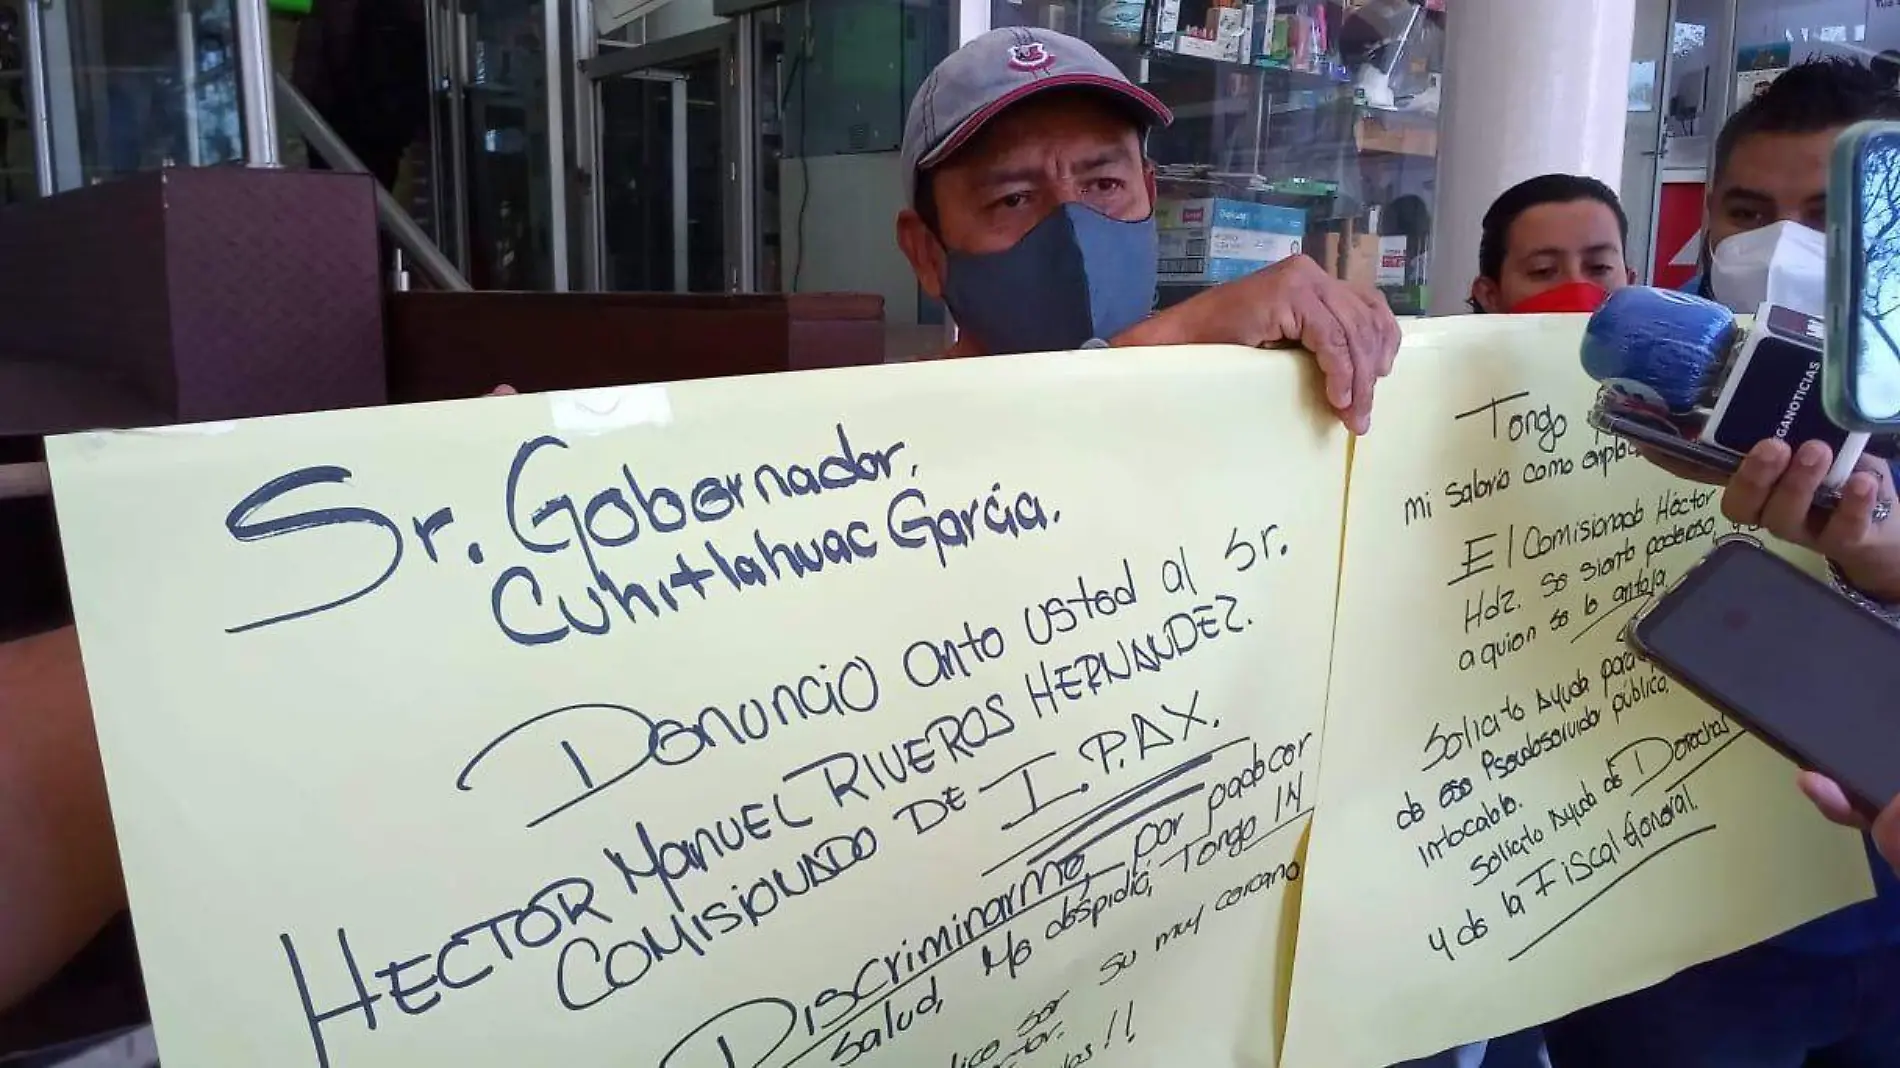 Sr. Gobernador.
Cuhitlahuac García.
Denuncio ante usted al Sr.
HECTOR MANUEL RIVEROS HERNANDEZ.
COMISIONADO DE I.PAX.
Discriminarme, por padecer
salud, Me despidió, Tengo IN
su muy cercano
ser
!!
Tengo
mi salario como
El Comisionado Héctor
Hdz. Se siente poderoso,
a quien se le antoja
Solicito Ayuda para
de ese Pseudoservidor público,
intocable.
Solicito Ayuda de Derechos
y de la Fiscal General.
GANOTICIAS